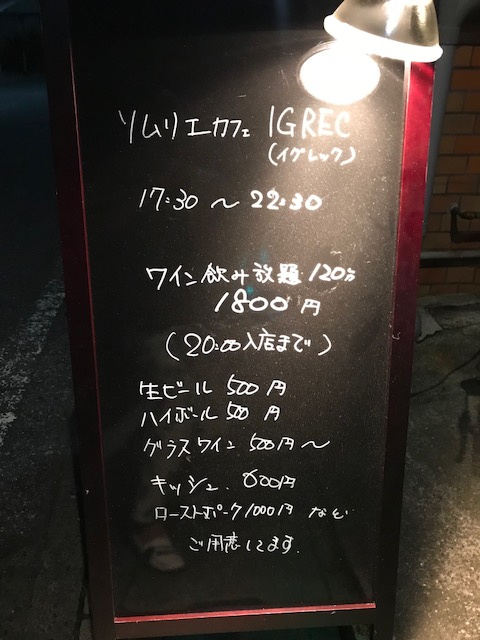 ソムリエカフェ IGREC
(イグレック)
17:30 〜 22:30
ワイン飲み放題 120分
1800円
(20:00入店まで)
生ビール 500円
ハイボール 500円
グラスワイン 500円〜
キッシュ 600円
ローストポーク 1000円 など
ご用意してます.